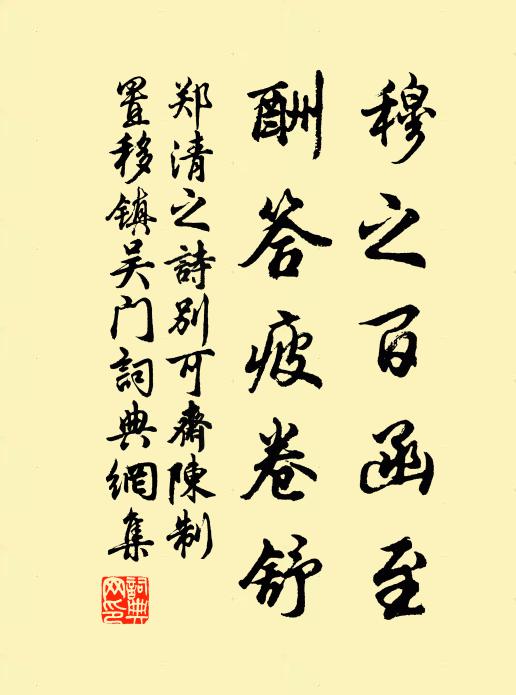 穆之百函至
酬答疲卷舒
郑清之詩別可齋陳制
置移鎮吴门詞典網集
詞典
网印